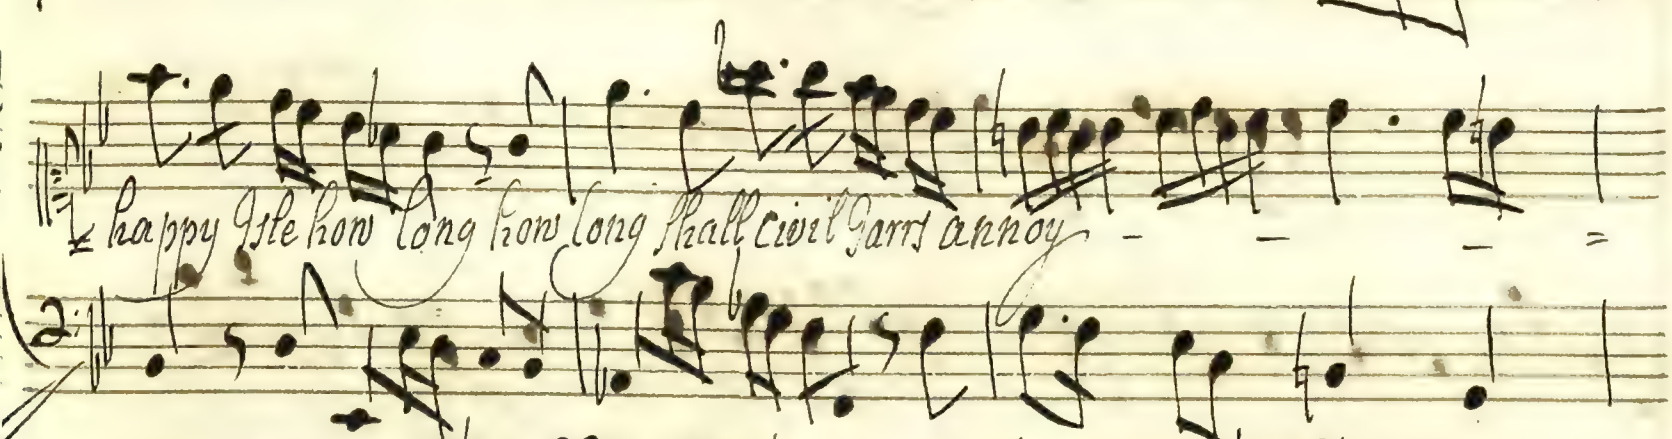 happy Isle how long how long shall civil Jarrs annoy - - - =